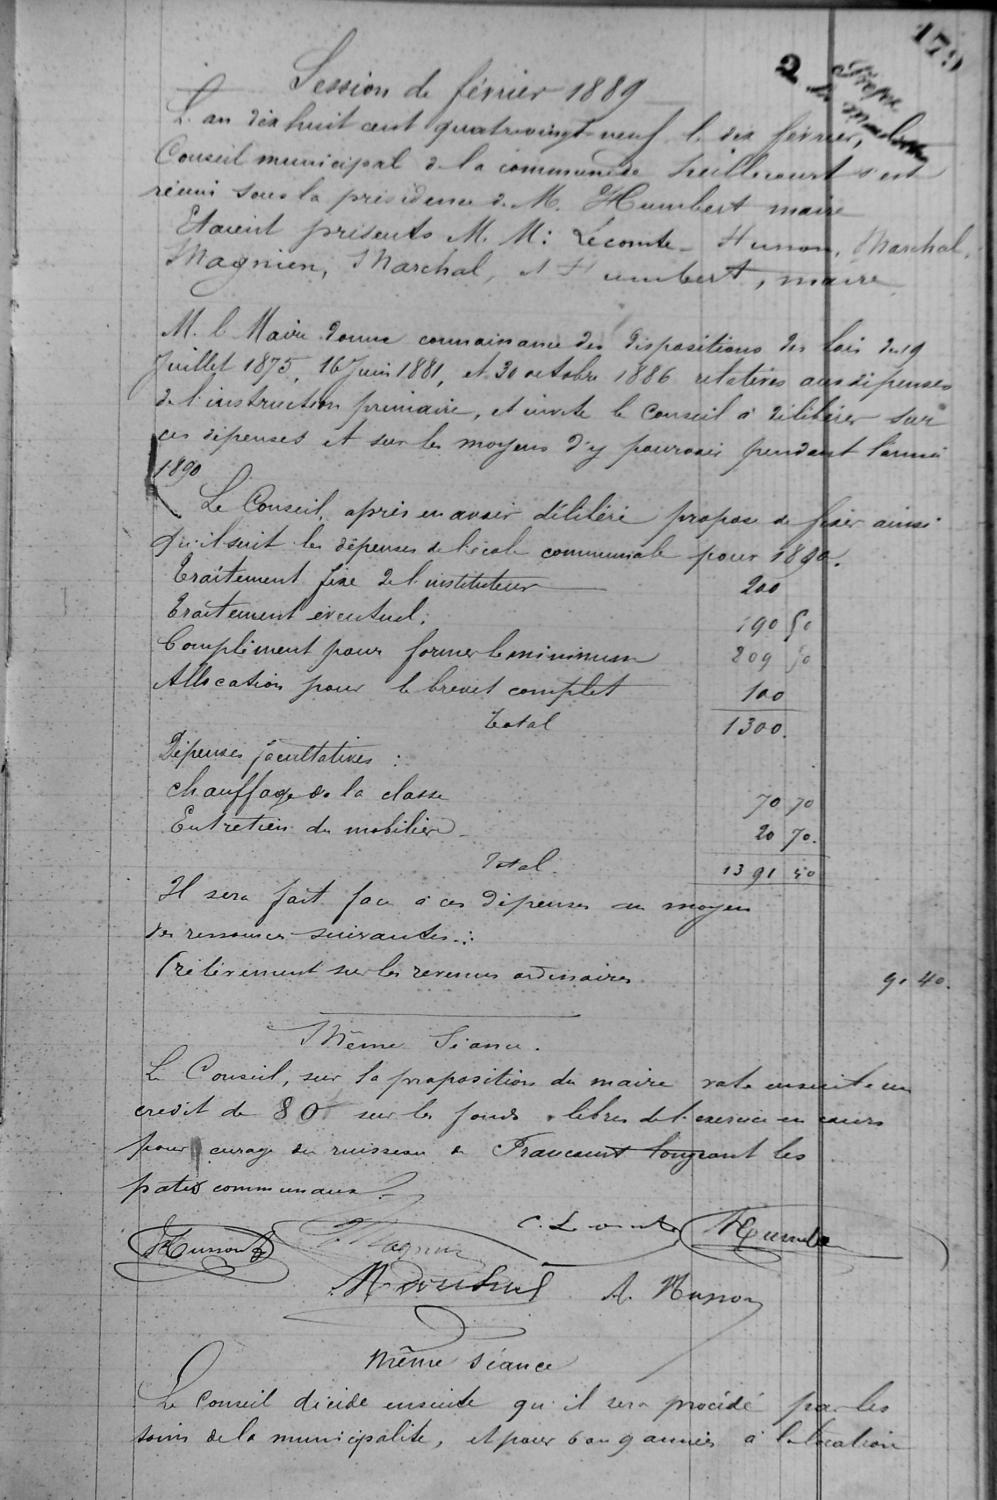 179
2
Session de février 1889
L'an dix huit cent quatrevingt-neuf le dix février, le
Conseil municipal de la commune de heillecourt s'est
réuni sous la présidence de M. Humbert maire
Etaient présents M. M: Lecomte - Husson, Marchal,
Magnien, Marchal, et Humbert, maire
M. le Maire donne connaissance des dispositions des lois du 19
Juillet 1875, 16 Juin 1881, et 30 octobre 1886 relatives aux dépenses
de l'instruction primaire, et invite le Conseil à délibérer sur
ces dépenses et sur les moyens d'y pourvoir pendant l'année
1890
Le Conseil, après en avoir délibéré propose de fixer ainsi
qu'il suit les dépenses de l'école communale pour 1890.
Traitement fixe de l'instituteur 200
Traitement éventuel: 190 50
Complément pour former le minimum 209 50
Allocation pour le brevet complet 100
Total 1300.
Dépenses facultatives :
Chauffage de la classe 70 70
Entretien du mobilier 20 70.
Total. 1391 40
Il sera fait face à ces dépenses au moyen
des ressources suivantes :
Prélèvement sur les revenus ordinaires 91 40.
Même Séance.
Le Conseil, sur la proposition du maire vote ensuite un
crédit de 80f sur les fonds libres de l'exercice en cours
pour curage du ruisseau de Fraucourt longeant les
patis communaux.
Husson
Magnien
C. Lecomte
Humbert
A. Husson
Même séance
Le Conseil décide ensuite qu'il sera procédé par les
soins de la municipalité, et pour 6 ou 9 années à la location